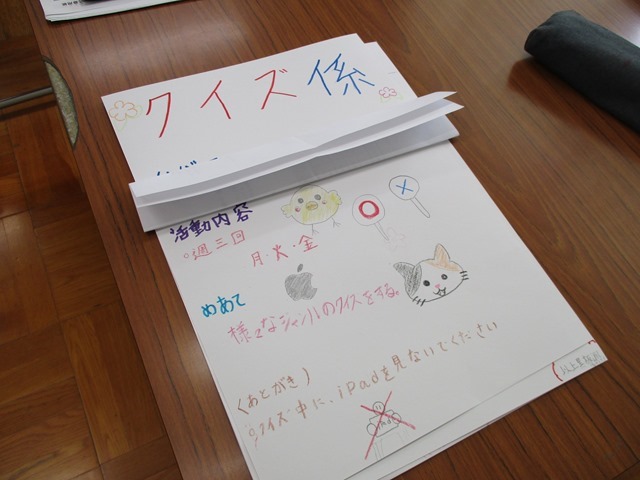 クイズ係
活動内容
○週三回
月・火・金
めあて
様々なジャンルのクイズをする。
(あとがき)
クイズ中に、iPadを見ないでください
iPad